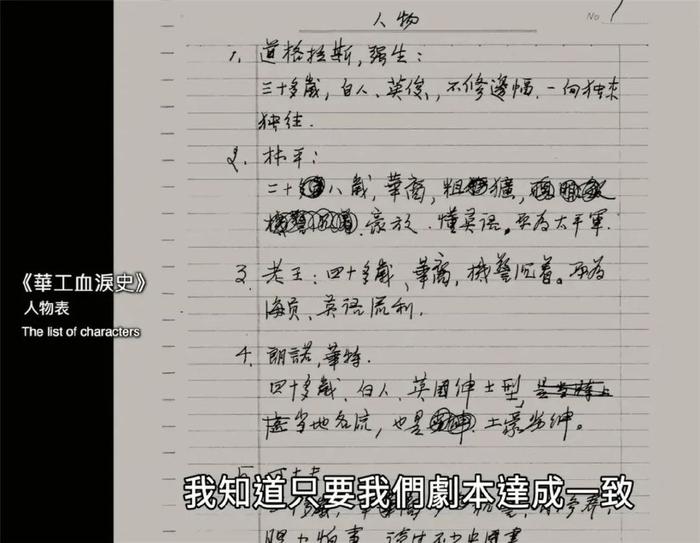 人物
No. 1
1. 道格拉斯，强生：
三十多歲，白人、英俊，不修邊幅，一向独来
独往．
2. 林平：
二十八歲，華裔，粗獷，
豪放．懂英语。原为太平軍．
3. 老王：四十多歲、華裔，機警沉着。原为
海员、英语流利．
4. 朗諾，華特．
四十多歲、白人、英國紳士型，
当地名流，也是土豪劣紳。
《華工血淚史》
人物表
The list of characters
我知道只要我們劇本達成一致